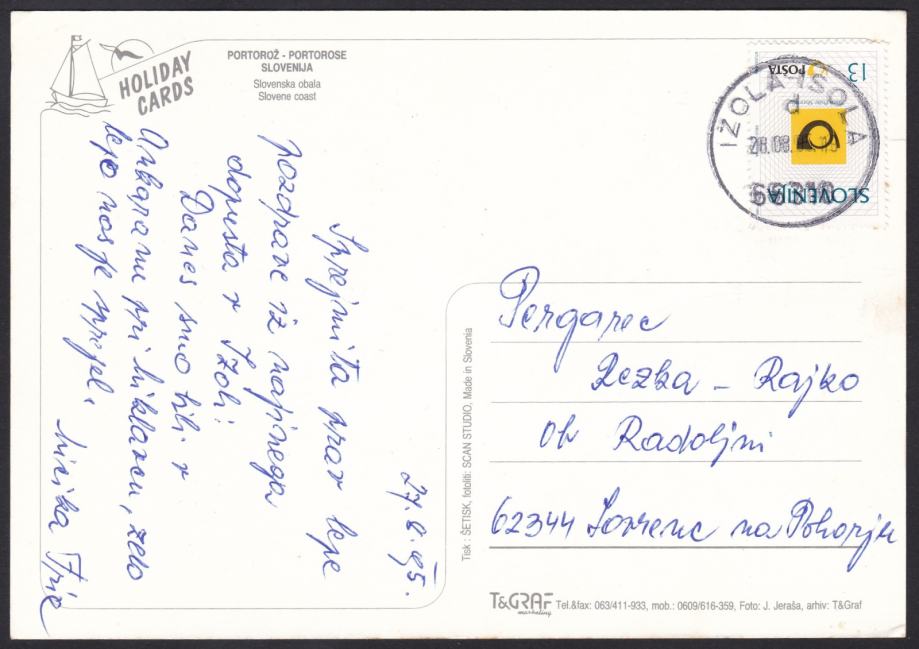 HOLIDAY
CARDS
PORTOROŽ - PORTOROSE
SLOVENIJA
Slovenska obala
Slovene coast
13
POŠTA
SLOVENIJA
IZOLA-ISOLA
d
66310
27. 8. 95.
Sprejmita prav lepe
pozdrave iz najinega
dopusta v Izoli.
Danes smo bili v
Ankaranu pri Miklavcu, zelo
lepo nas je sprejel.
Pergarec
Rezka - Rajko
ob Radoljni
62344 Lovrenc na Pohorju
Tisk : ŠETISK, fotoliti: SCAN STUDIO, Made in Slovenia
T&GRAF
marketing
Tel.&fax: 063/411-933, mob.: 0609/616-359, Foto: J. Jeraša, arhiv: T&Graf